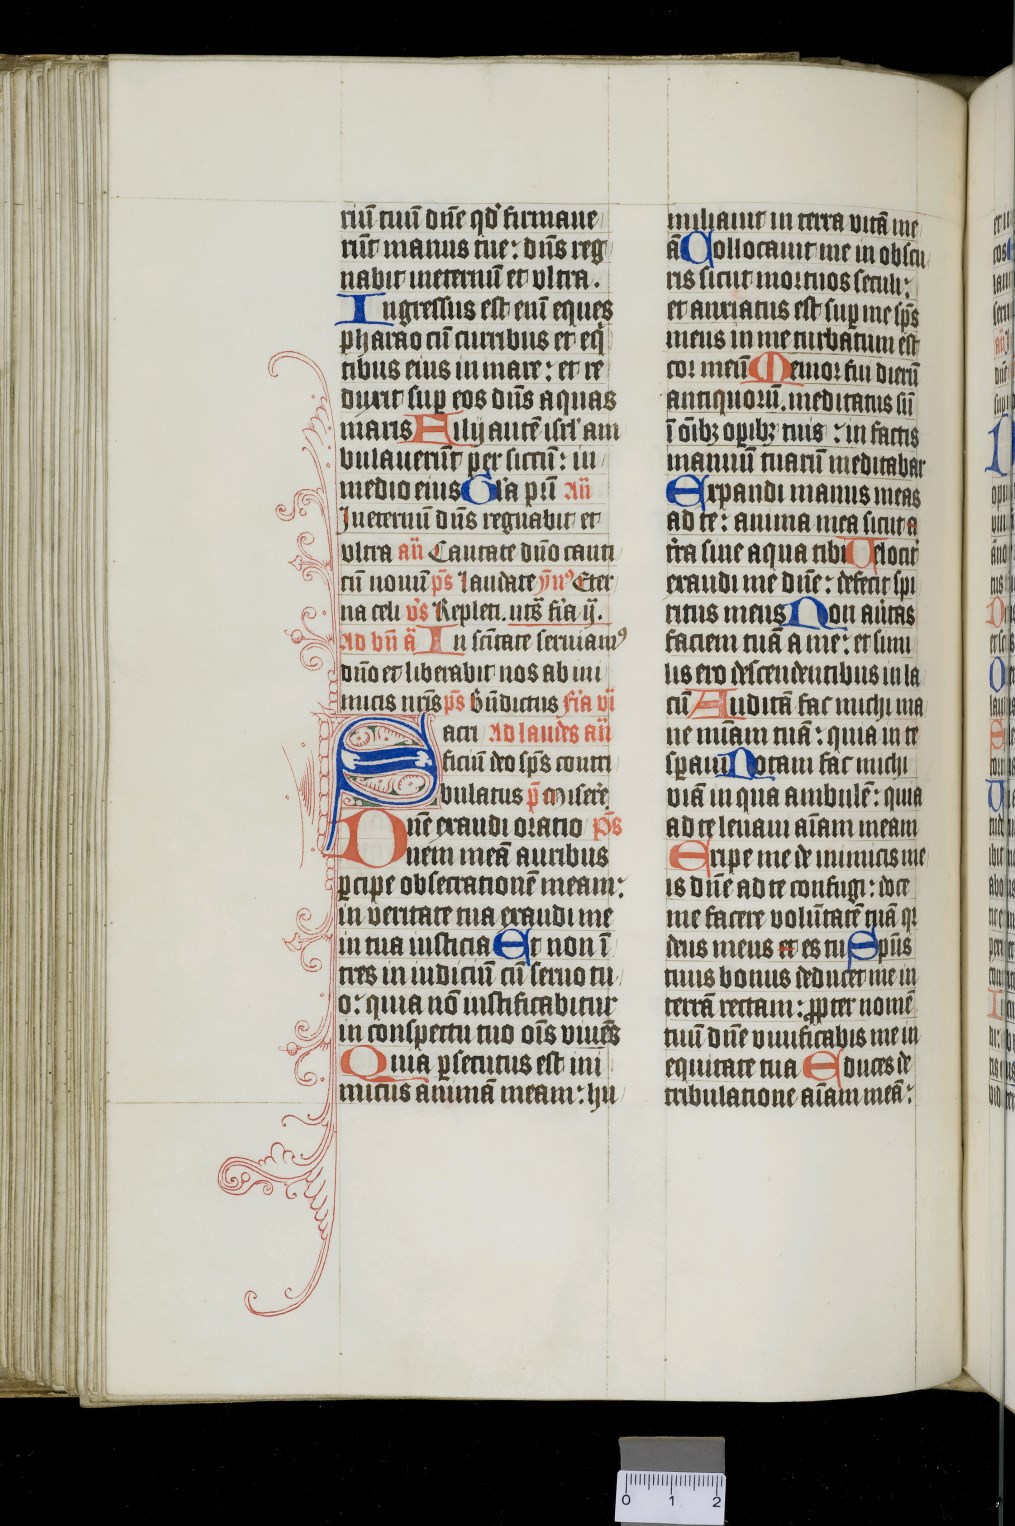 riū tuū dn̄e qd̕ firmaue
rūt manus tue: dn̄s reg
nabit ineternū et vltra.
Ingressus est eni̅ eques
pharao cū curribus et eq̇
tibus eius in mare: et re
duxit sup̱ eos dn̄s aquas
maris Filij autē isrl̕ am
bulauerūt per siccū: in
medio eius Gl̕a pr̄i an̄
Ineternū dn̄s regnabit et
vltra an̄ Cantate dn̄o canti
cū nouū ps̄ laudate ym̄ꝰ Eter
na celi vs̕ Repleti. vts̄ fi̕a ij.
Ad bn̄ a̅ In sc̄itate seruiamꝰ
dn̄o et liberabit nos ab ini
micis nr̄is ps̄ bn̄dictus fi̕a vi
Sacri Ad laudes an̄
ficiū deo sp̄s contri
bulatus p̄ misere̕
Dn̄e exaudi oratio ps̄
nem meā auribus
ꝑcipe obsecrationē meam:
in veritate tua exaudi me
in tua iusticia Et non ī
tres in iudiciū cū seruo tu
o: quia nō iustificabitur
in conspectu tuo oīs viuēs
Quia ꝑsecutus est ini
micus animā meam: hu
miliauit in terra vitā me
ā Collocauit me in obscu
ris sicut mortuos seculi:
et anxiatus est sup̱ me sp̄s
meus in me turbatum est
cor meū Memor fui dierū
antiquorū. meditatus sū
ī oībꝫ opibꝫ tuis: in factis
manuū tuarū meditabar
Expandi manus meas
ad te: anima mea sicut a
tr̄a sine aqua tibi Velocit̕
exaudi me dn̄e: defecit spi
ritus meus Non au̕tas
faciem tuā a me: et simi
lis ero descendentibus in la
cū Auditā fac michi ma
ne mīam tuā: quia in te
sp̱aui Notam fac michi
viā in qua ambulē: quia
ad te leuaui aīam meam
Eripe me de inimicis me
is dn̄e ad te confugi: doce
me facere volūtatē tuā qr
deus meus et es tu Spūs
tuus bonus deducet me in
terrā rectam: ꝓpter nomē
tuū dn̄e viuificabis me in
equitate tua Educes de
tribulatione aīam meā:
0 1 2